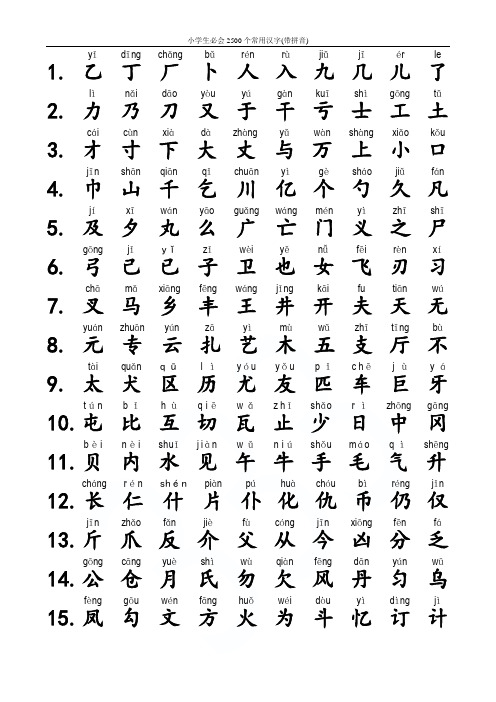 小学生必会2500个常用汉字(带拼音)
yǐ dīng chǎng bǔ rén rù jiǔ jǐ ér le
1. 乙 丁 厂 卜 人 入 九 几 儿 了
lì nǎi dāo yòu yú gàn kuī shì gōng tǔ
2. 力 乃 刀 又 于 干 亏 士 工 土
cái cùn xià dà zhàng yǔ wàn shàng xiǎo kǒu
3. 才 寸 下 大 丈 与 万 上 小 口
jīn shān qiān qǐ chuān yì gè sháo jiǔ fán
4. 巾 山 千 乞 川 亿 个 勺 久 凡
jí xī wán yāo guǎng wáng mén yì zhī shī
5. 及 夕 丸 么 广 亡 门 义 之 尸
gōng jǐ yǐ zǐ wèi yě nǚ fēi rèn xí
6. 弓 己 已 子 卫 也 女 飞 刃 习
chā mǎ xiāng fēng wáng jǐng kāi fu tiān wú
7. 叉 马 乡 丰 王 井 开 夫 天 无
yuán zhuān yún zā yì mù wǔ zhī tīng bù
8. 元 专 云 扎 艺 木 五 支 厅 不
tài quǎn qū lì yóu yǒu pǐ chē jù yá
9. 太 犬 区 历 尤 友 匹 车 巨 牙
tún bǐ hù qiē wǎ zhǐ shǎo rì zhōng gāng
10. 屯 比 互 切 瓦 止 少 日 中 冈
bèi nèi shuǐ jiàn wǔ niú shǒu máo qì shēng
11. 贝 内 水 见 午 牛 手 毛 气 升
cháng rén shén piàn pú huà chóu bì réng jǐn
12. 长 仁 什 片 仆 化 仇 币 仍 仅
jīn zhǎo fǎn jiè fù cóng jīn xiōng fēn fá
13. 斤 爪 反 介 父 从 今 凶 分 乏
gōng cāng yuè shì wù qiàn fēng dān yún wū
14. 公 仓 月 氏 勿 欠 风 丹 匀 乌
fèng gōu wén fāng huǒ wéi dòu yì dìng jì
15. 凤 勾 文 方 火 为 斗 忆 订 计